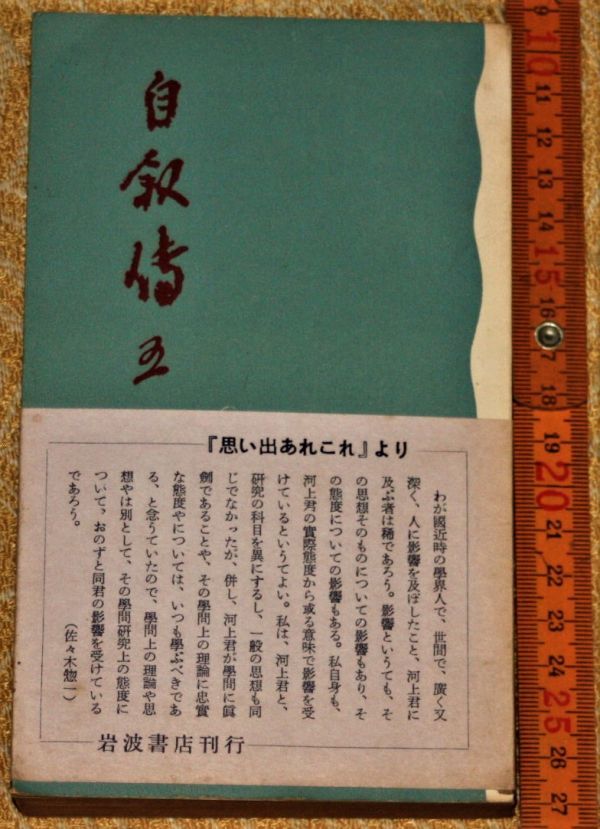 自叙傳 五
『思い出あれこれ』より
わが國近時の學界人で、世間で、廣く又
深く、人に影響を及ぼしたこと、河上君に
及ぶ者は稀であろう。影響というても、そ
の思想そのものについての影響もあり、そ
の態度についての影響もある。私自身も、
河上君の實際態度から或る意味で影響を受
けているというてよい。私は、河上君と、
研究の科目を異にするし、一般の思想も同
じでなかったが、併し、河上君が學問に眞
劍であることや、その學問上の理論に忠實
な態度やについては、いつも學ぶべきであ
る、と念うていたので、學問上の理論や思
想やは別として、その學問研究上の態度に
ついて、おのずと同君の影響を受けている
であろう。
（佐々木惣一）
岩波書店刊行
9
10
11
12
13
14
15
16
7
18
19
20
21
22
23
24
25
26
27